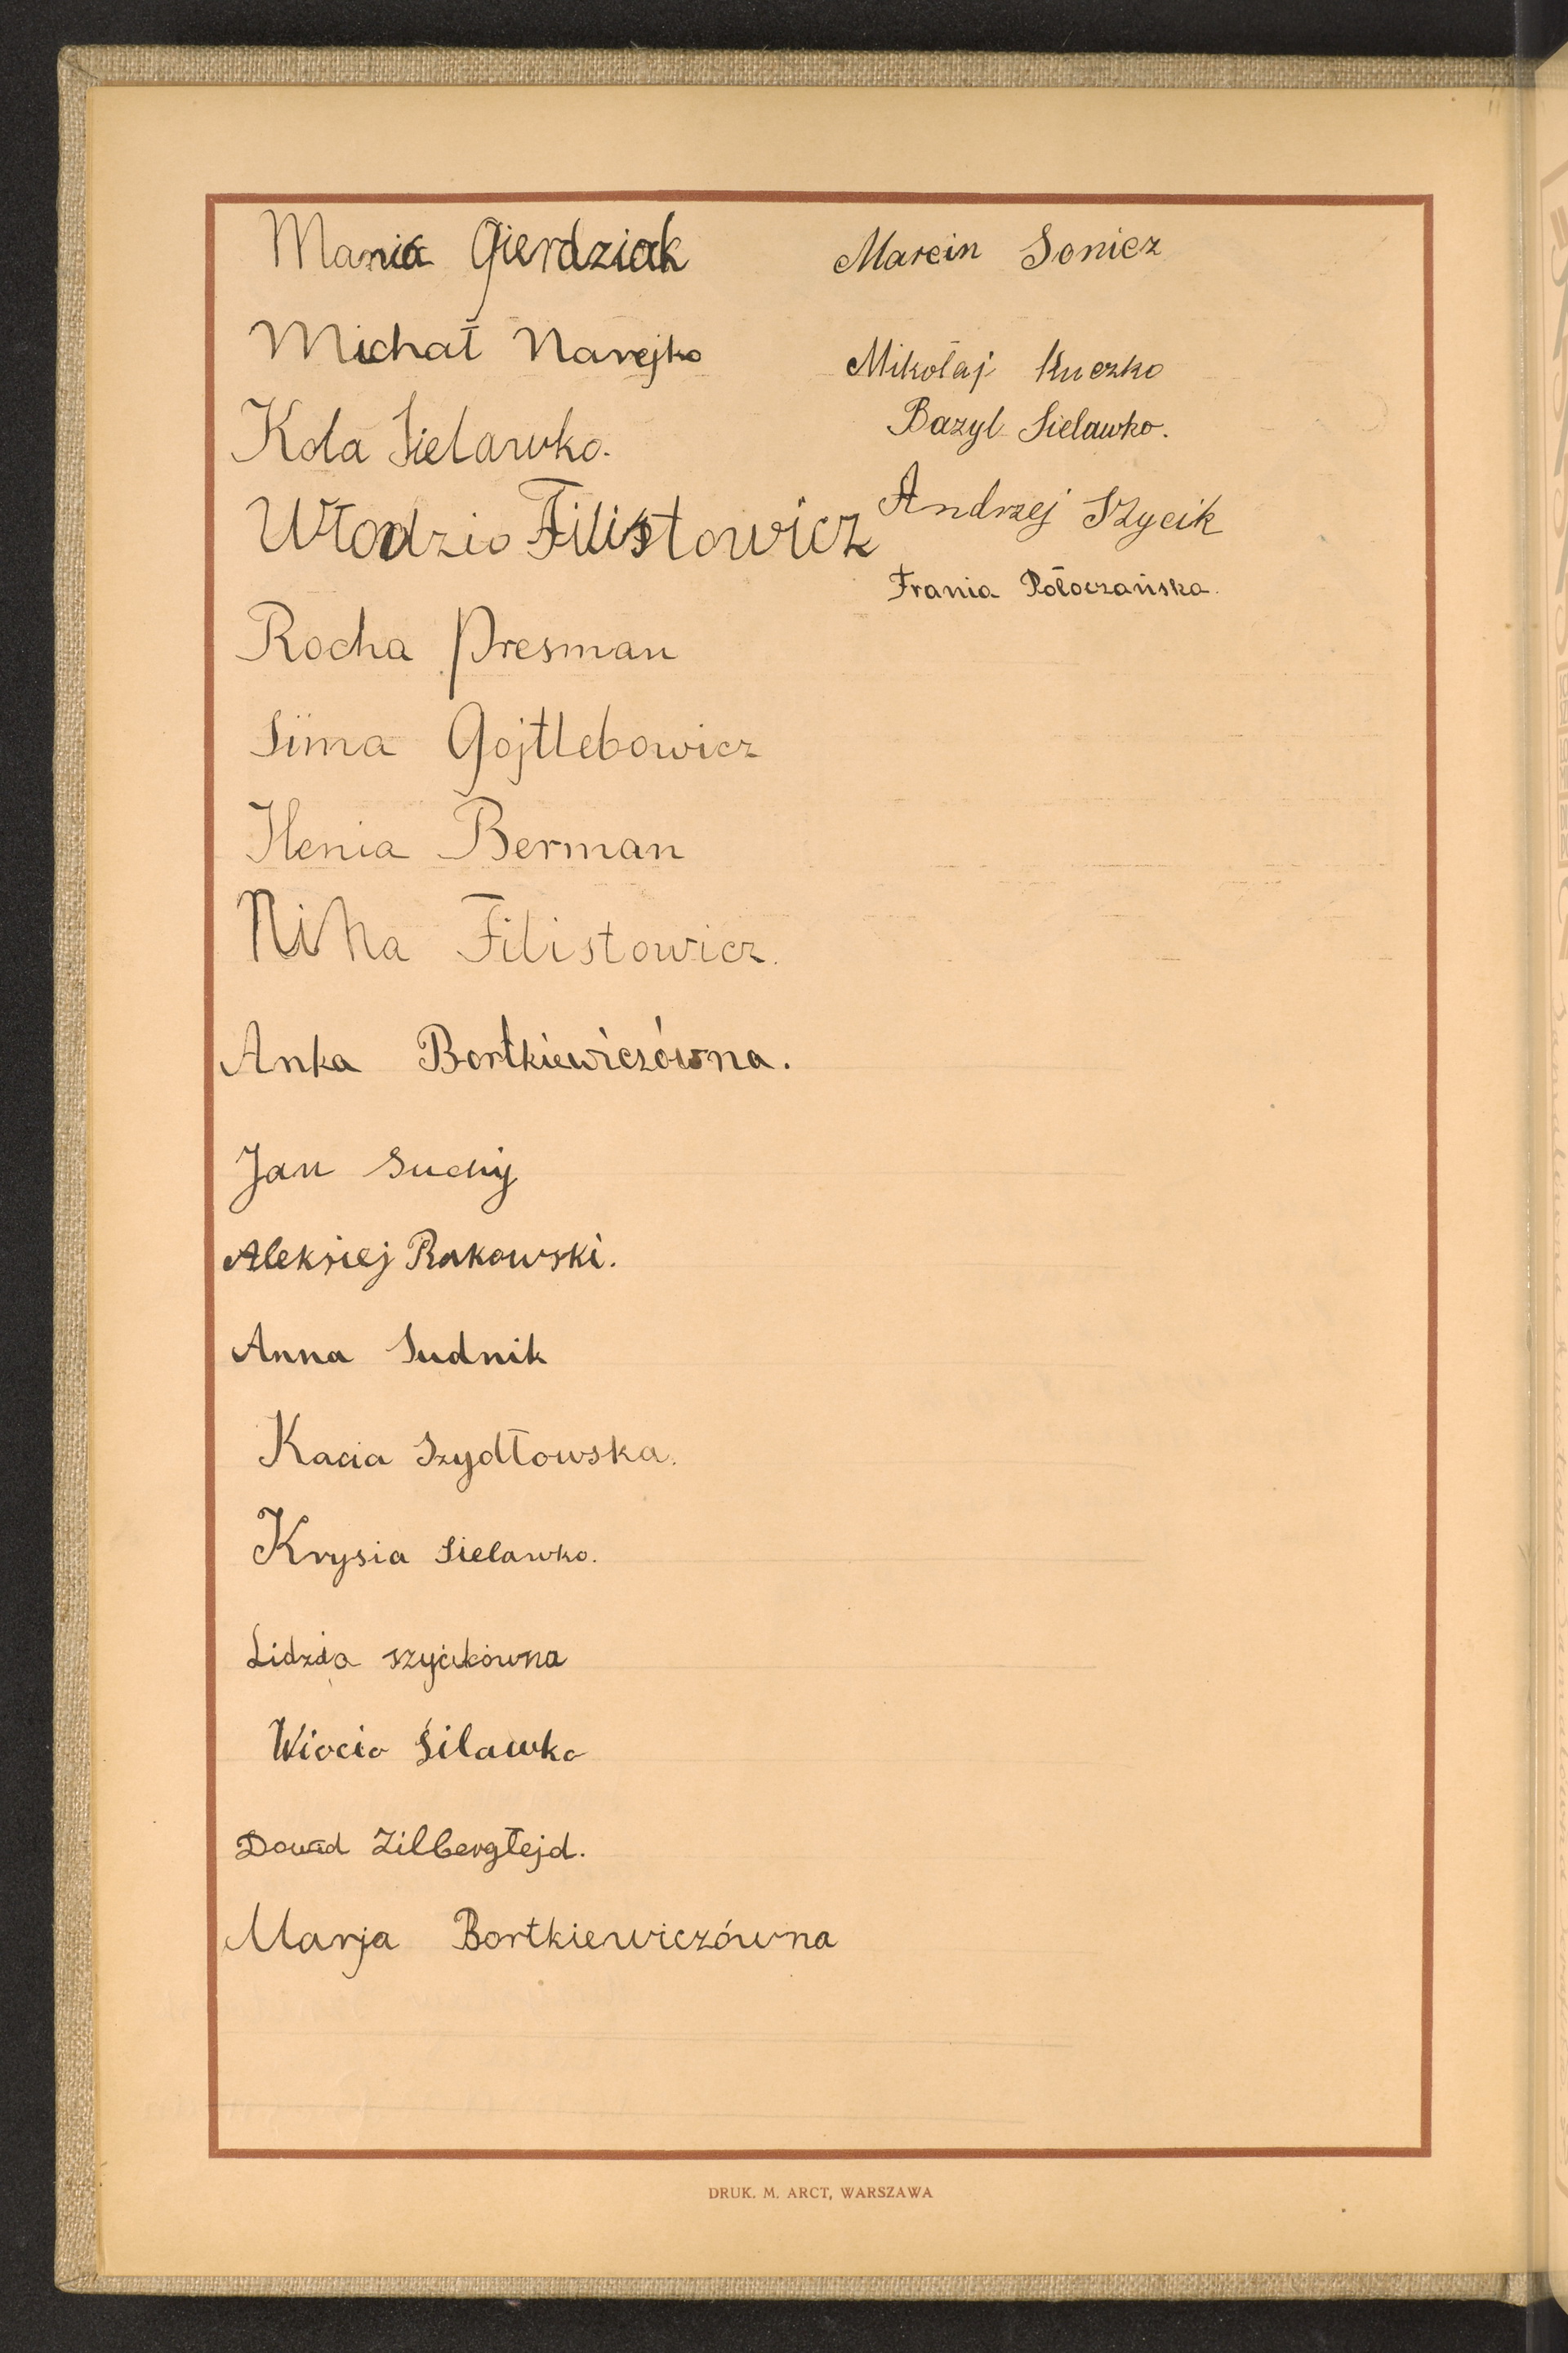 Mania Gierdziak
Michał Narejko
Kola Sielawko.
Włodzio Filistowicz
Rocha Presman
Sima Gojtlebowicz
Henia Berman
Nina Filistowicz.
Anka Bortkiewiczówna.
Jan Suchy
Aleksiej Rakowski.
Anna Sudnik
Kacia Szydłowska.
Krysia Sielawko.
Lidzia szycikówna
Wiocio Silawko
Dowid Zilbergłejd.
Marja Bortkiewiczówna
Marcin Sonicz
Mikołaj Kuczko
Bazyl Sielawko.
Andrzej Szycik
Frania Połoczańska.
DRUK. M. ARCT, WARSZAWA